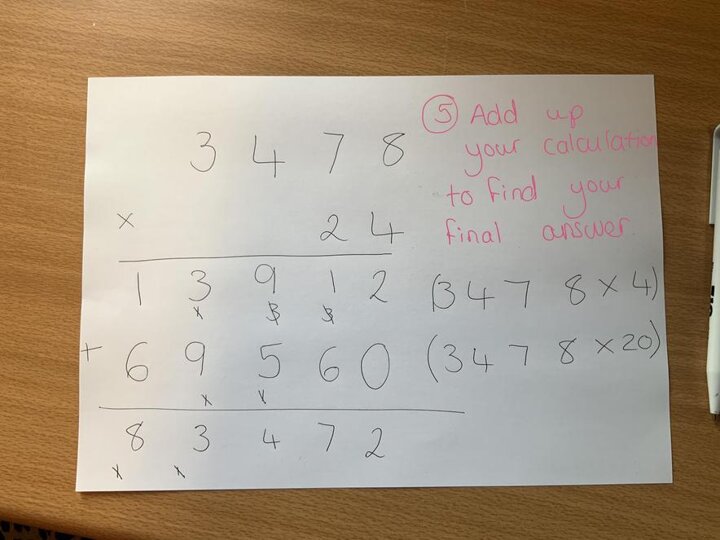 ⑤ Add up
your calculation
to find your
final answer.
3 4 7 8
× 2 4
1 3 9 1 2 (3 4 7 8 × 4)
1 3 3
+ 6 9 5 6 0 (3 4 7 8 × 20)
1 1
8 3 4 7 2
1 1